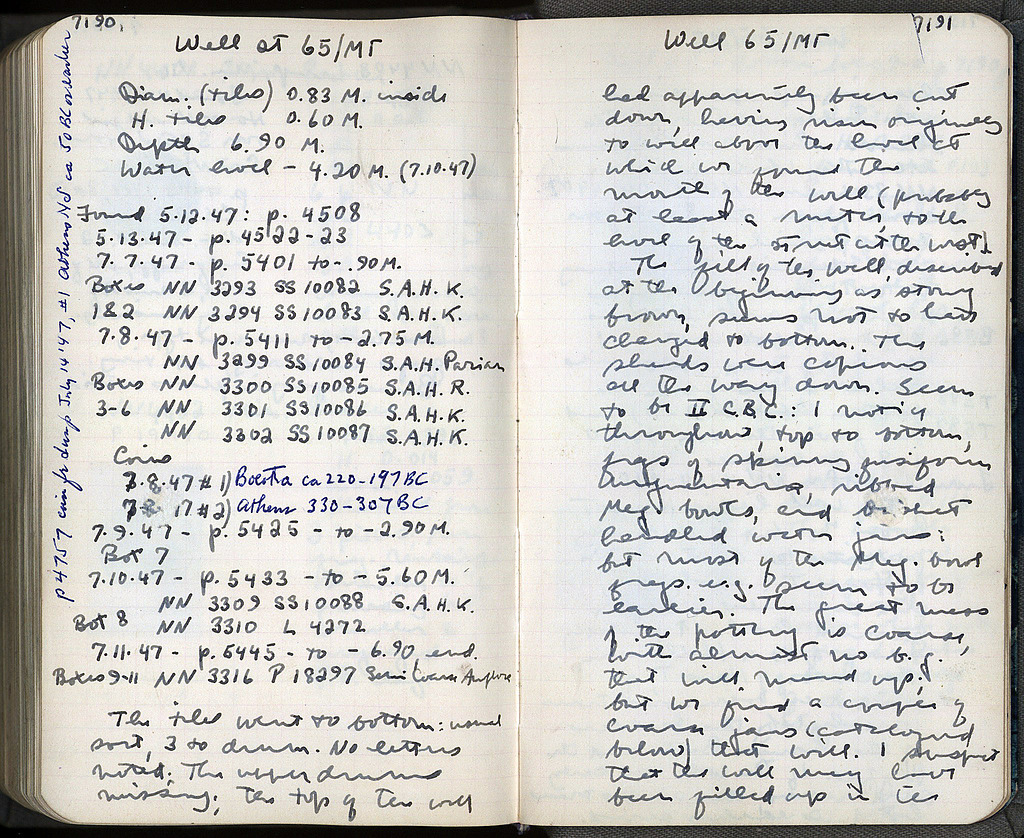 7190
Well at 65/ΜΓ
Diam. (tiles) 0.83 M. inside
H. tiles 0.60 M.
Depth 6.90 M.
Water level - 4.20 M. (7.10.47)
Found 5.12.47: p. 4508
5.13.47 - p. 4522-23
7.7.47 - p. 5401 to - .90 M.
Boxes NN 3293 SS 10082 S.A.H. K.
1&2 NN 3294 SS 10083 S.A.H.K.
7.8.47 - p. 5411 to - 2.75 M.
NN 3299 SS 10084 S.A.H. Parian
Boxes NN 3300 SS 10085 S.A.H R.
3-6 NN 3301 SS 10086 S.A.H.K.
NN 3302 SS 10087 S.A.H.K.
Coins
7.8.47 #1) Boeotia ca 220-197 BC
7.8.47 #2) Athens 330-307 BC
7.9.47 - p. 5425 - to - 2.90 M.
Box 7
7.10.47 - p. 5433 - to - 5.60 M.
NN 3309 SS 10088 S.A.H.K.
Box 8 NN 3310 L 4272
7.11.47 - p. 5445 - to - 6.90, end.
Boxes 9-11 NN 3316 P 18297 Semi Coarse Amphora
The tiles went to bottom: usual
sort, 3 to drum. No letters
noted. The upper drums
missing; the top of the well
p 4757 coin fr dump July 14 '47, #1 Athens NS ca 50 BC or earlier
7191
Well 65/ΜΓ
had apparently been cut
down, having risen originally
to well above the level at
which we found the
mouth of the well (probably
at least a meter, to the
level of the street at the west).
The fill of the well described
at the beginning as strong
brown, seems not to have
changed to bottom. The
sherds were copious
all the way down. Seem
to be II C.B.C.: I notice
throughout, top to bottom,
frags of skinny fusiform
unguentaria, ribbed
Meg. bowls, and basket
handled water jars:
but most of the Meg. bowl
frags. e.g. seem to be
earlier. The great mass
of the pottery is coarse,
with almost no b.g.,
that will mend up;
but we find a couple of
coarse jars (catalogued
below) that will. I suspect
that the well may have
been filled up in the